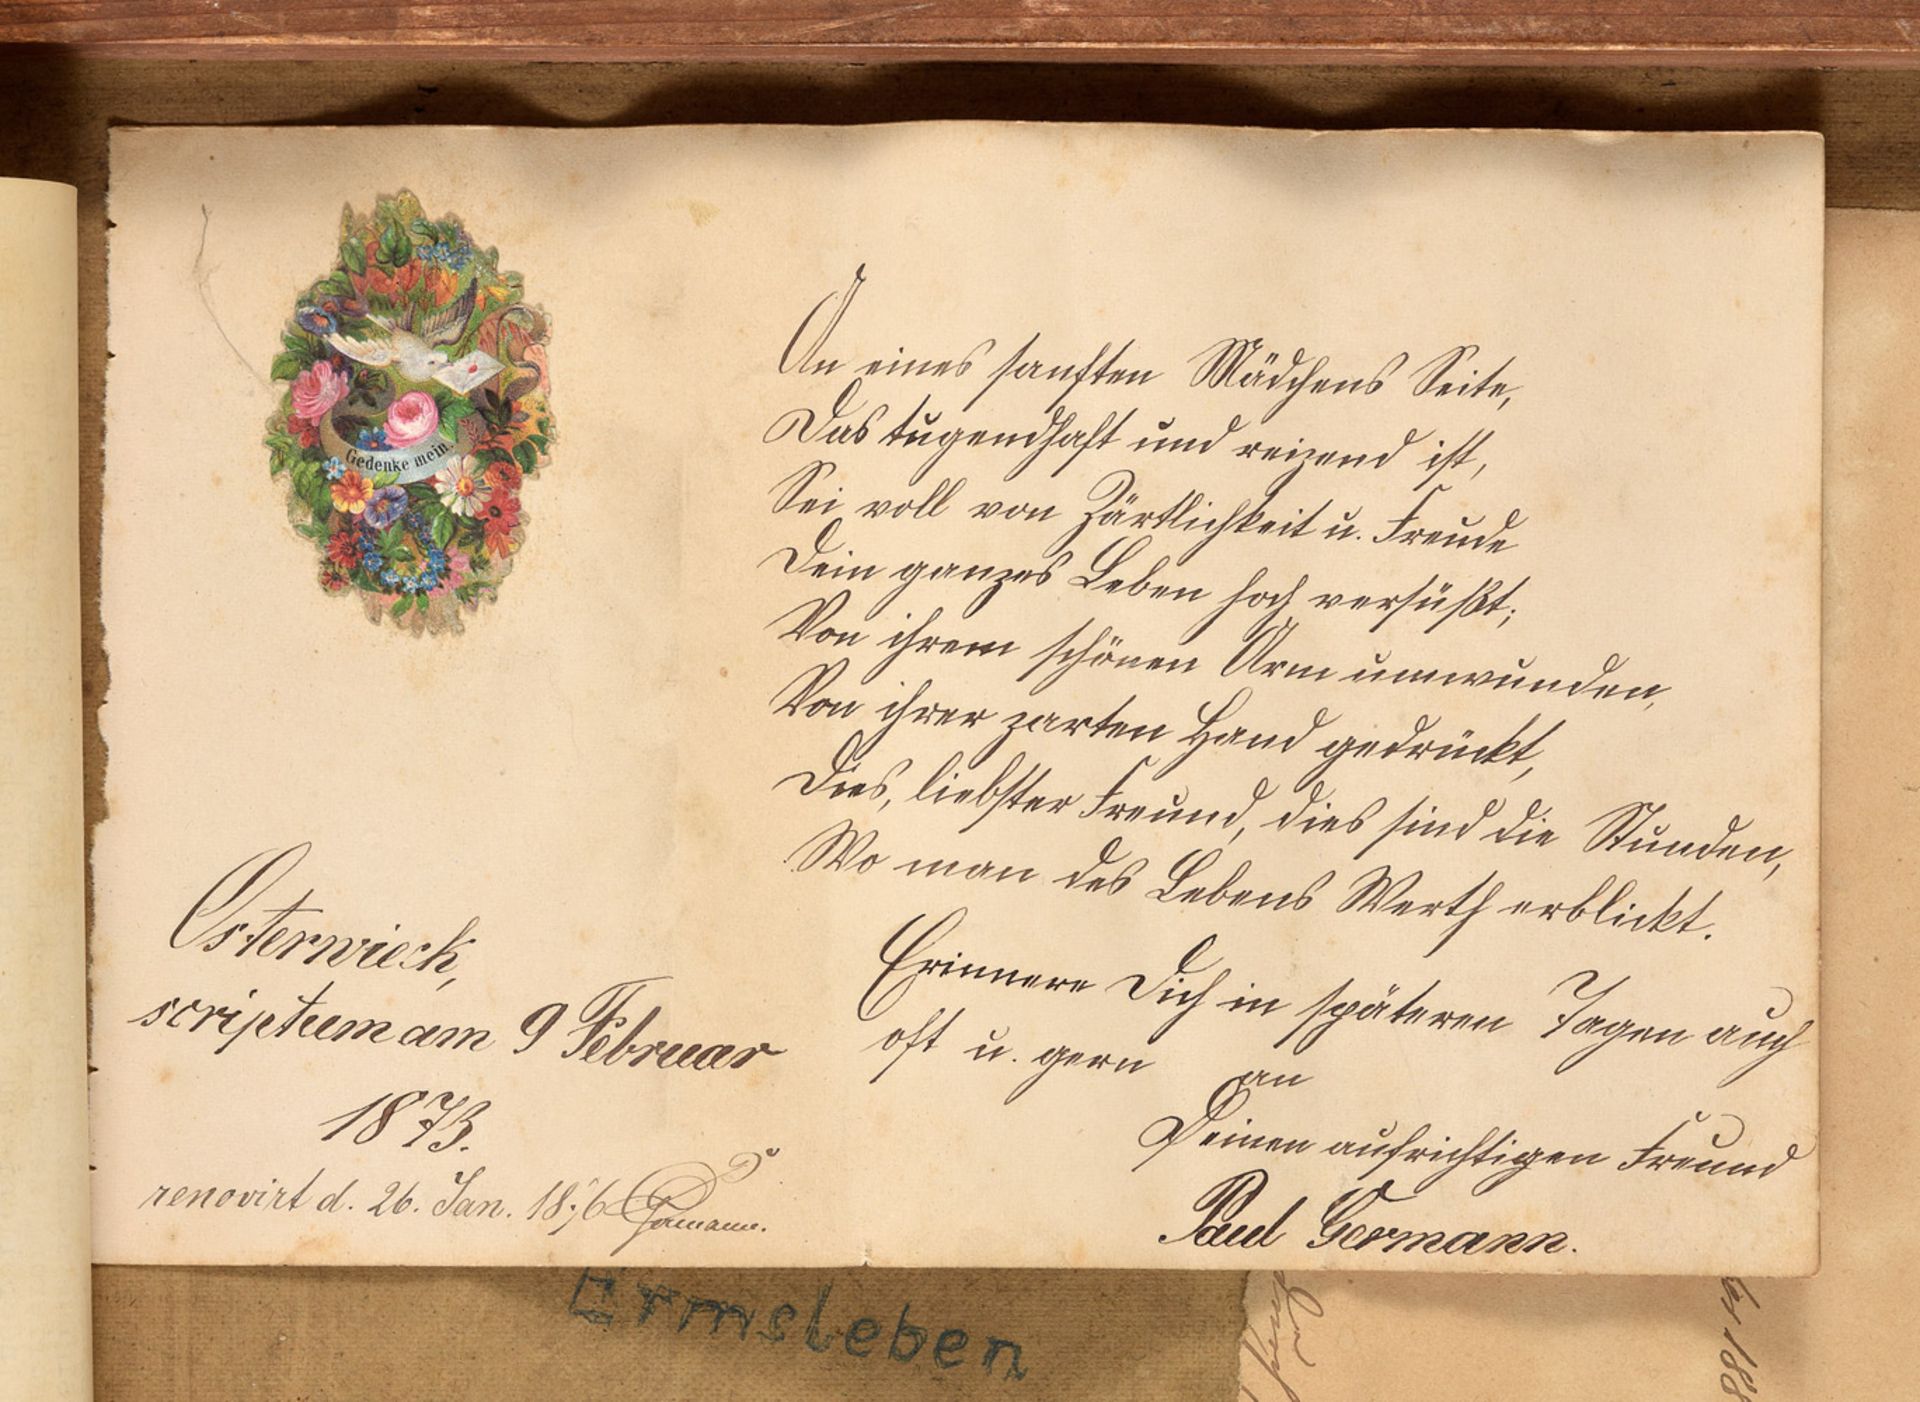 Gedenke mein.
An eines sanften Mädchens Seite,
Das tugendhaft und reizend ist,
Sei voll von Zärtlichkeit u. Freude
Dein ganzes Leben hoch versüßt;
Von ihrem schönen Arm umwunden,
Von ihrer zarten Hand gedrückt,
Dies, liebster Freund, dies sind die Stunden,
Wo man des Lebens Werth erblickt.
Erinnere Dich in späteren Tagen auch
oft u. gern an
Deinen aufrichtigen Freund
Paul Germann.
Osterwieck,
scriptum am 9 Februar
1873.
renovirt d. 26. Jan. 1876 Germann.
Ermsleben